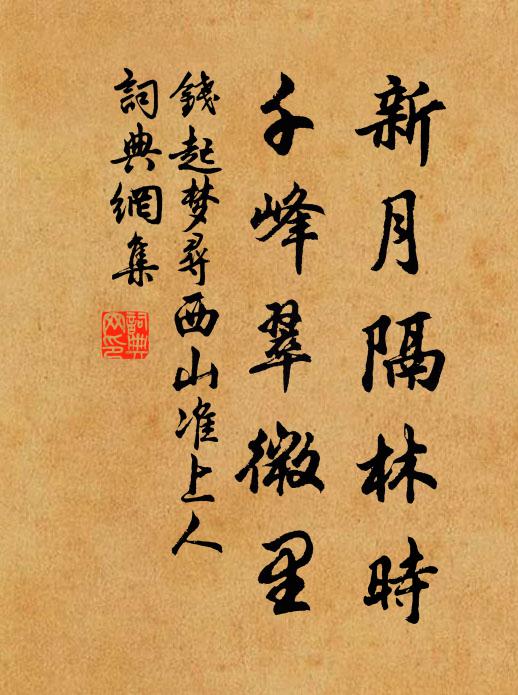 新月隔林時
千峰翠微里
錢起梦尋西山准上人
詞典網集
詞典
网印